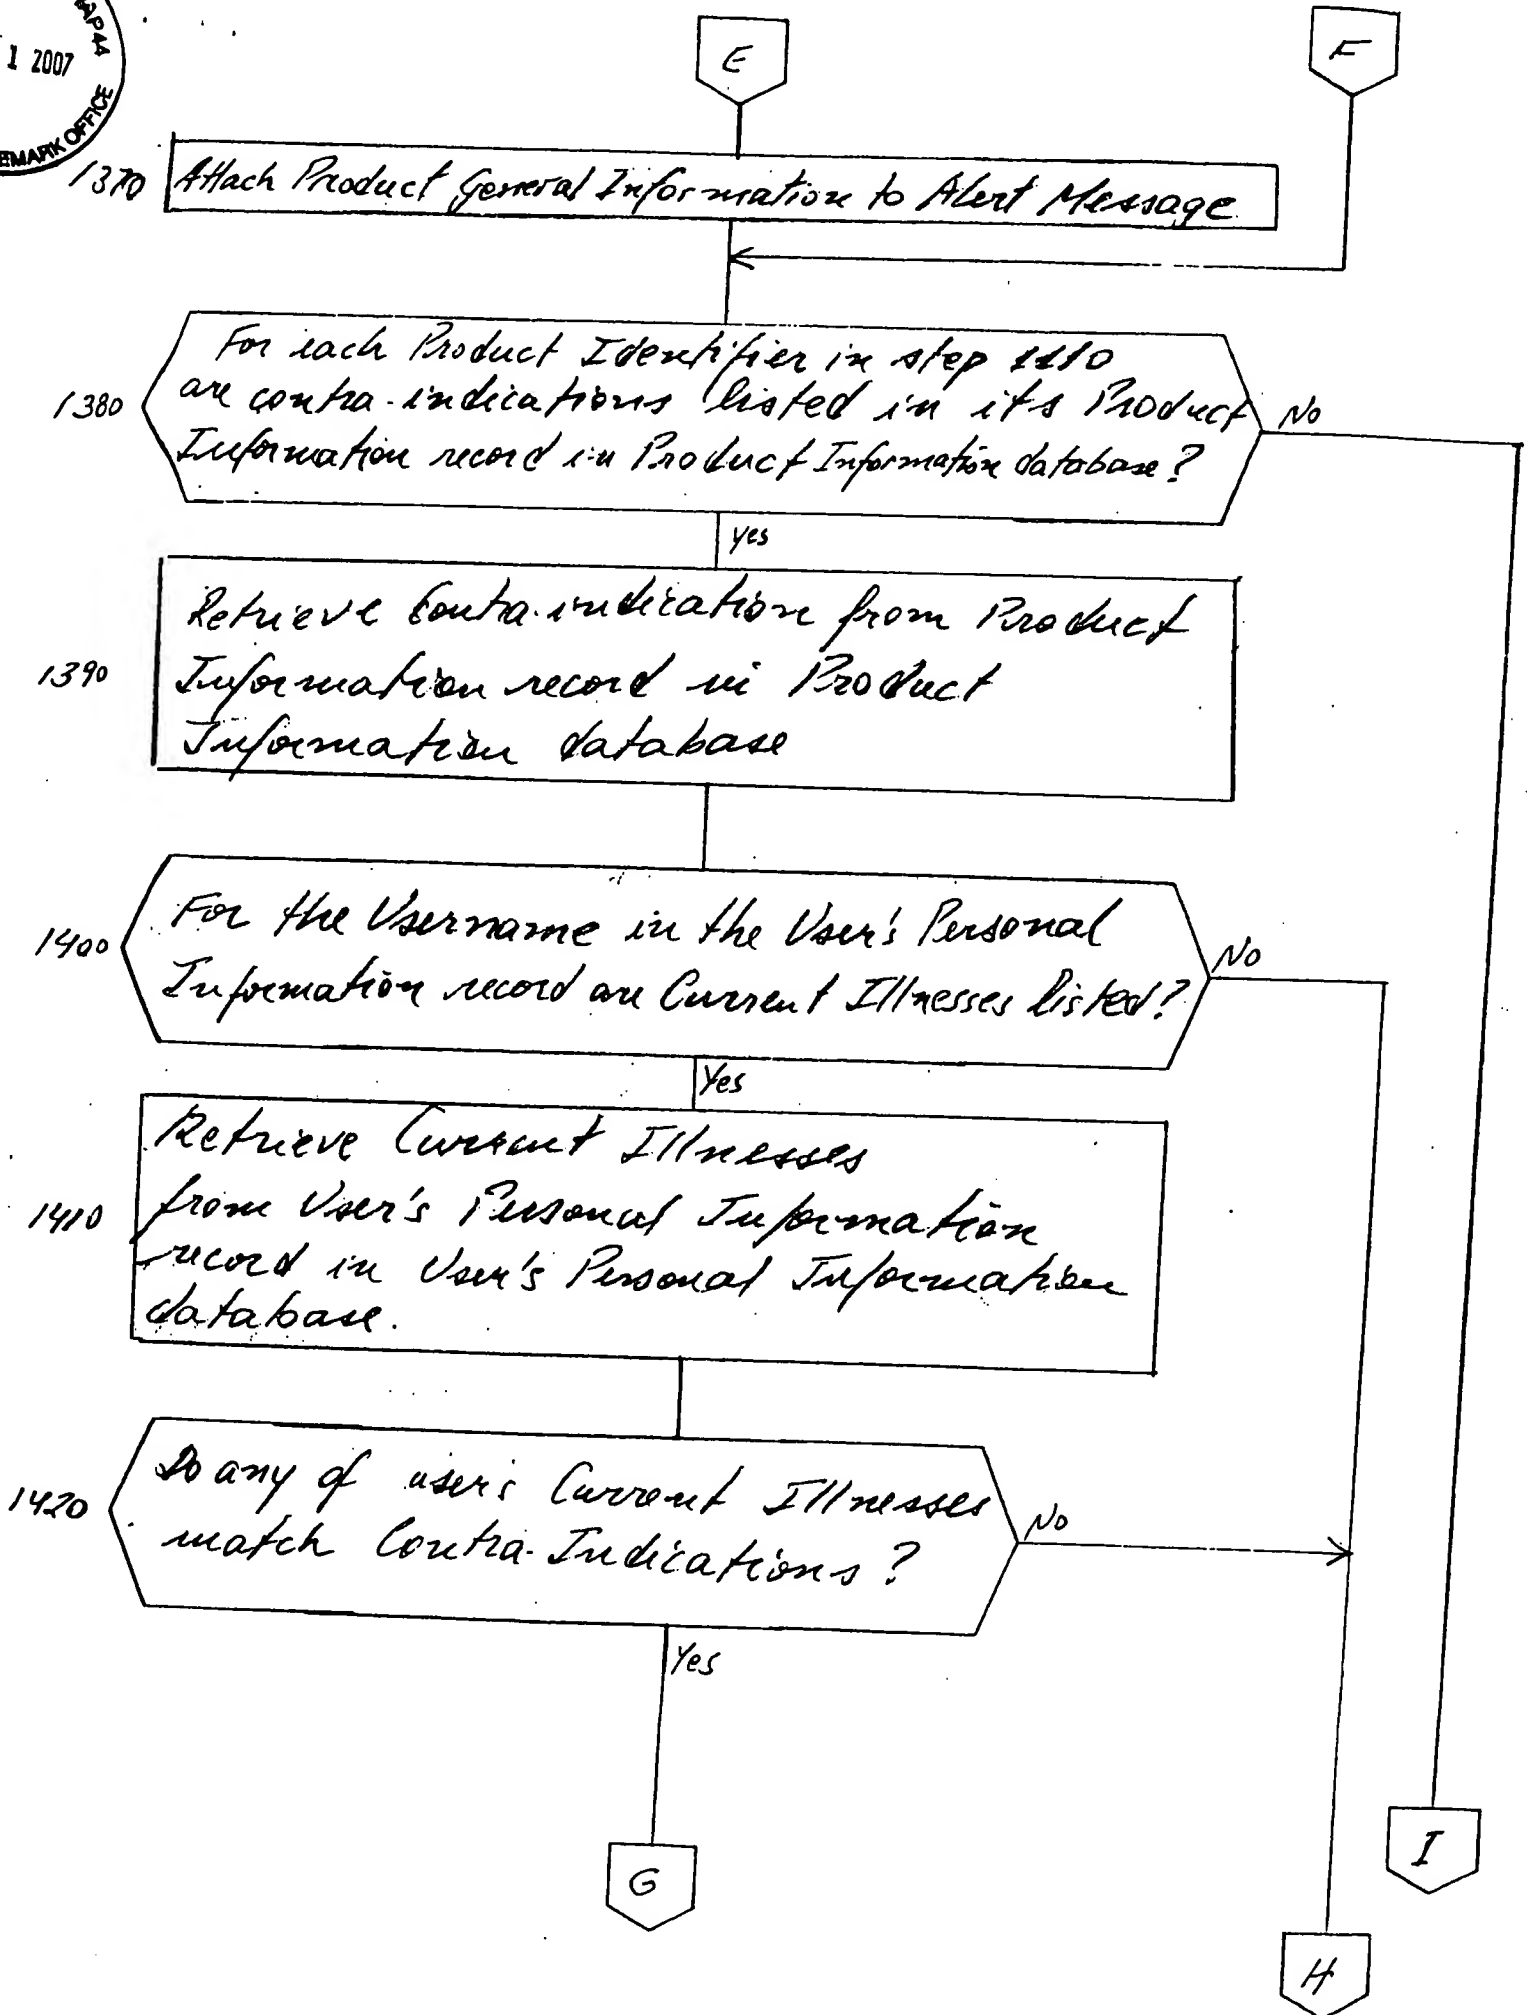 1 2007
EMARK OFFICE
E
F
1370
Attach Product General Information to Alert Message
For each Product Identifier in step 1110
1380
are contra-indications listed in its Product
No
Information record in Product Information database?
yes
Retrieve Contra-indication from Product
1390
Information record in Product
Information database
For the Username in the User's Personal
1400
No
Information record are Current Illnesses listed?
Yes
Retrieve Current Illnesses
1410
from User's Personal Information
record in User's Personal Information
database.
Do any of user's Current Illnesses
1420
No
match Contra-Indications?
Yes
I
G
H